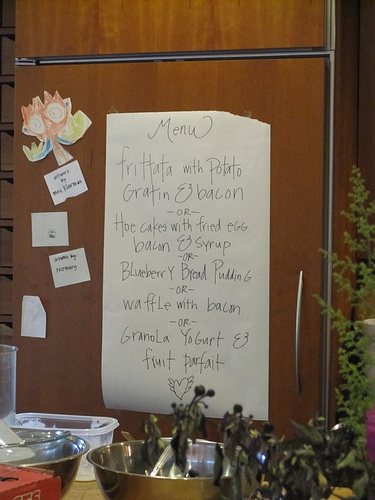 Menu
frittata with Potato
Gratin & bacon
-OR-
Hoe cakes with fried egg
bacon & Syrup
-OR-
Blueberry Bread Pudding
-OR-
waffle with bacon
-OR-
Granola Yogurt &
fruit parfait
artwork
by
artwork by